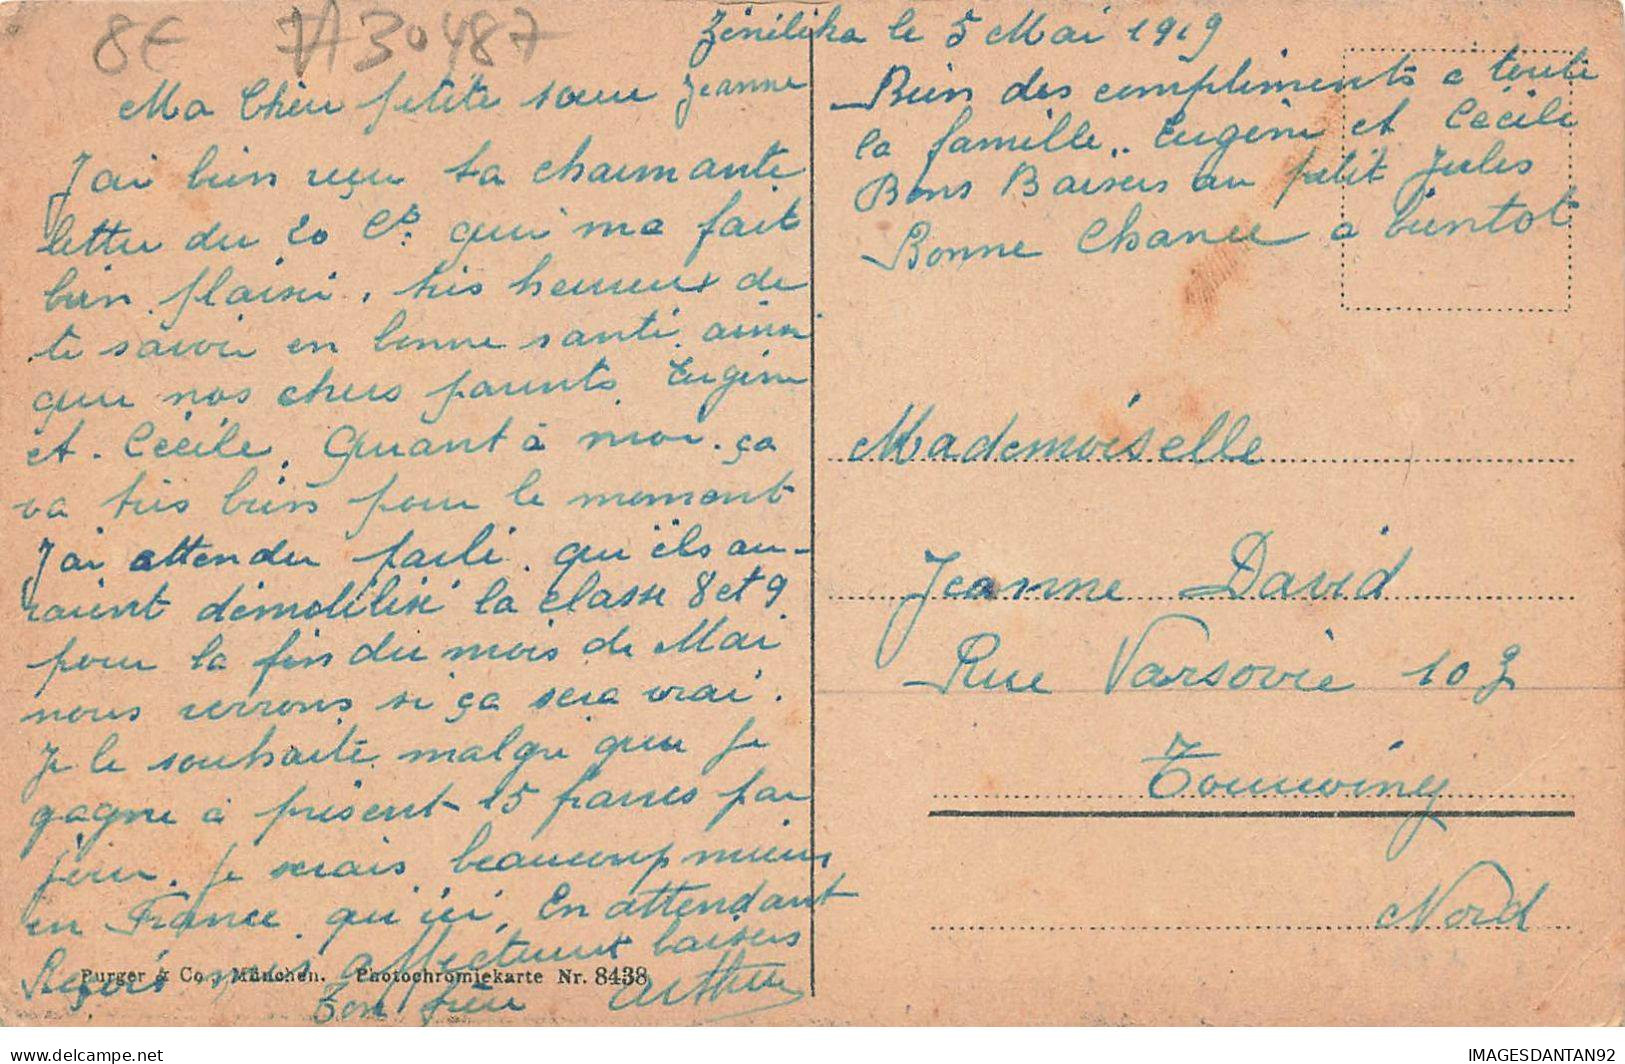 8E 7A30487
Zénilika le 5 Mai 1919
Ma Chère petite sœur Jeanne
J'ai bien reçu ta charmante
lettre du 20 Ct. qui me fait
bien plaisir, très heureux de
te savoir en bonne santé, ainsi
que nos chers parents, Eugène
et Cécile, Quant à moi ça
va très bien pour le moment
J'ai attendu parlé qu'ils au-
raient démobilisé la classe 8 et 9
pour la fin du mois de Mai
nous verrons si ça sera vrai.
Je le souhaite malgré que je
gagne à présent 15 francs par
jour, je serais beaucoup mieux
en France qu'ici, En attendant
Reçois mes affectueux baisers
Ton frère Arthur
Purger & Co., München. Photochromiekarte Nr. 8438
Bien des compliments a toute
la famille, Eugène et Cécile
Bons Baisers au petit Jules
Bonne Chance a bientot
Mademoiselle
Jeanne David
Rue Varsovie 103
Tourcoing
Nord
www.delcampe.net
IMAGESDANTAN92